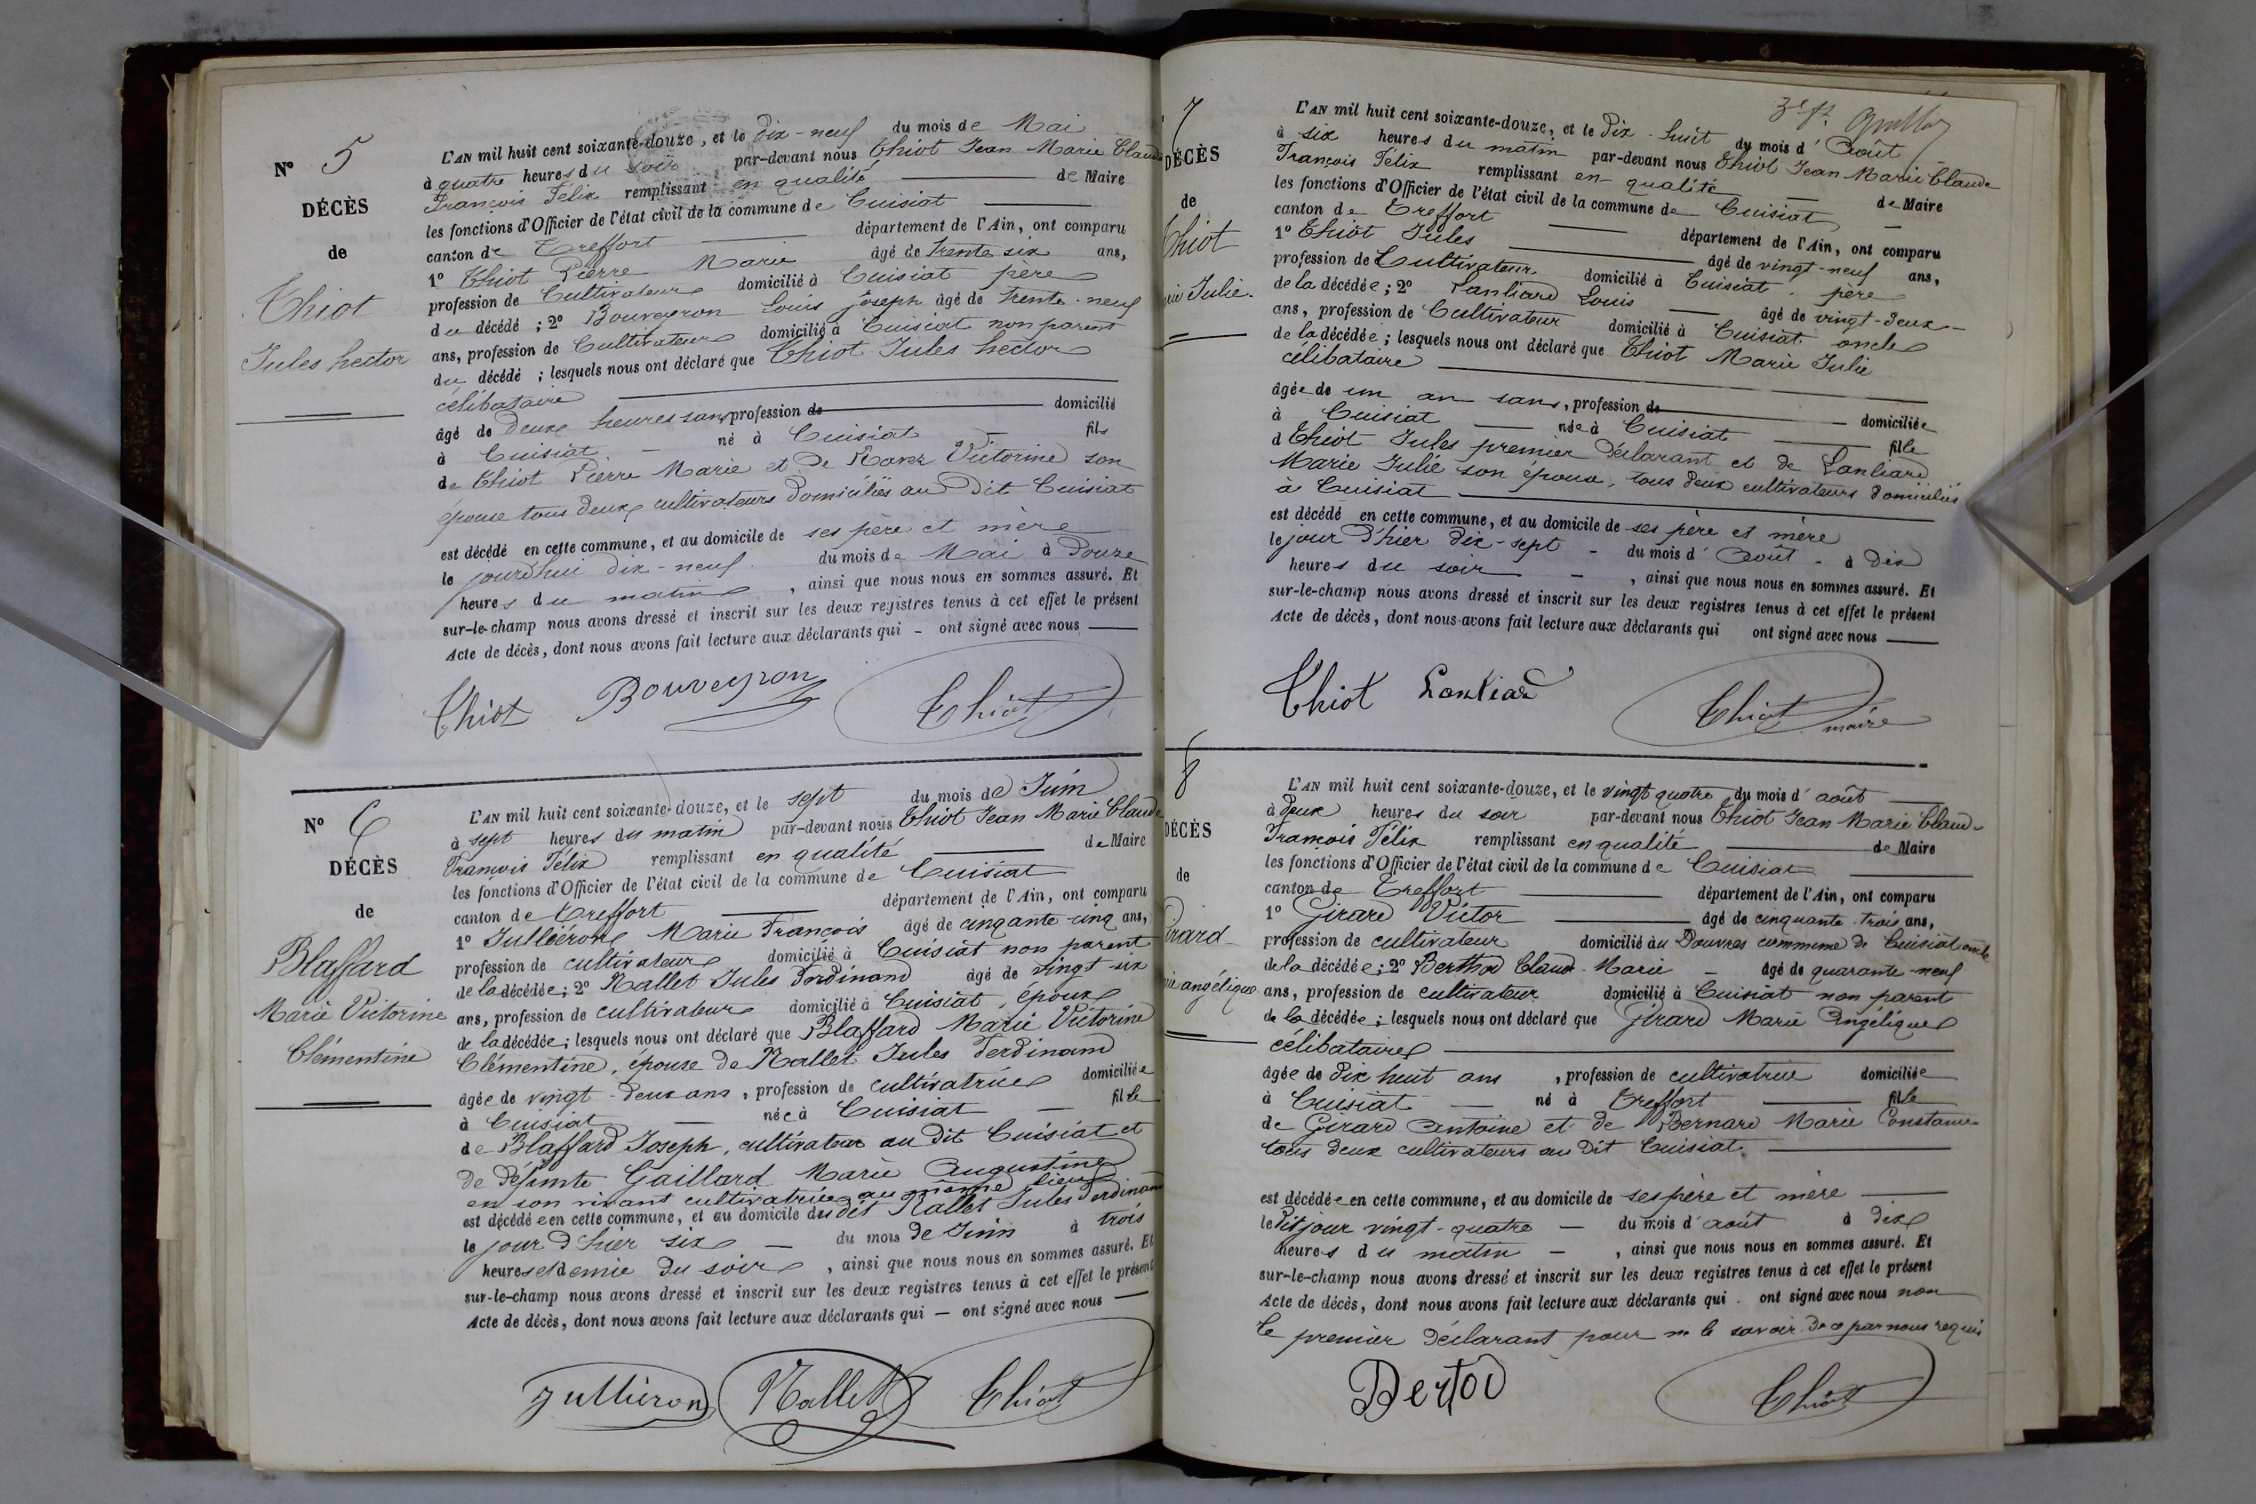 N° 5
DÉCÈS
de
Thiot
Jules hector
L'AN mil huit cent soixante-douze, et le dix-neuf du mois de Mai
à quatre heures du soir par-devant nous Thiot Jean Marie Claude
François Félix remplissant en qualité de Maire
les fonctions d'Officier de l'état civil de la commune de Cuisiat
canton de Treffort département de l'Ain, ont comparu
1° Thiot Pierre Marie âgé de trente six ans,
profession de Cultivateur domicilié à Cuisiat père
du décédé ; 2° Bouveyron Louis joseph âgé de trente-neuf
ans, profession de Cultivateur domicilié à Cuisiat non parent
du décédé ; lesquels nous ont déclaré que Thiot Jules hector
célibataire
âgé de deux heures sans, profession de domicilié
à Cuisiat né à Cuisiat fils
de Thiot Pierre Marie et de Victorine son
épouse tous deux cultivateurs domiciliés au dit Cuisiat
est décédé en cette commune, et au domicile de ses père et mère
le jourd'hui dix-neuf du mois de Mai à douze
heures du matin, ainsi que nous nous en sommes assuré. Et
sur-le-champ nous avons dressé et inscrit sur les deux registres tenus à cet effet le présent
Acte de décès, dont nous avons fait lecture aux déclarants qui - ont signé avec nous
Thiot Bouveyron Thiot
N° 6
DÉCÈS
de
Blaffard
Marie Victorine
Clémentine
L'AN mil huit cent soixante-douze, et le sept du mois de Juin
à sept heures du matin par-devant nous Thiot Jean Marie Claude
François Félix remplissant en qualité de Maire
les fonctions d'Officier de l'état civil de la commune de Cuisiat
canton de Treffort département de l'Ain, ont comparu
1° Jullièron Marie François âgé de cinqante-cinq ans,
profession de cultivateur domicilié à Cuisiat non parent
de la décédée ; 2° Rallet Jules Ferdinand âgé de vingt-six
ans, profession de cultivateur domicilié à Cuisiat, époux
de la décédée ; lesquels nous ont déclaré que Blaffard Marie Victorine
Clémentine, épouse de Rallet Jules Ferdinand
âgée de vingt-deux ans, profession de cultivatrice domiciliée
à Cuisiat née à Cuisiat fille
de Blaffard Joseph, cultivateur au dit Cuisiat et
de défunte Gaillard Marie Augustine
en son vivant cultivatrice au même lieu
est décédée en cette commune, et au domicile du dit Rallet Jules Ferdinand
le jour d'hier six du mois de Juin à trois
heures et demie du soir, ainsi que nous nous en sommes assuré. Et
sur-le-champ nous avons dressé et inscrit sur les deux registres tenus à cet effet le présent
Acte de décès, dont nous avons fait lecture aux déclarants qui — ont signé avec nous
Jullieron Rallet Thiot
7
DÉCÈS
de
Thiot
Julie
L'AN mil huit cent soixante-douze, et le dix-huit du mois d'Août
à six heures du matin par-devant nous Thiot Jean Marie Claude
François Félix remplissant en qualité de Maire
les fonctions d'Officier de l'état civil de la commune de Cuisiat
canton de Treffort département de l'Ain, ont comparu
1° Thiot Jules âgé de vingt-neuf ans,
profession de Cultivateur domicilié à Cuisiat père
de la décédée ; 2° Lanliard Louis âgé de vingt-deux
ans, profession de Cultivateur domicilié à Cuisiat oncle
de la décédée ; lesquels nous ont déclaré que Thiot Marie Julie
célibataire
âgée de un an sans, profession de domiciliée
à Cuisiat née à Cuisiat fille
d Thiot Jules premier déclarant et de Lanliard
Marie Julie son épouse, tous deux cultivateurs domiciliés
à Cuisiat
est décédé en cette commune, et au domicile de ses père et mère
le jour d'hier dix-sept du mois d'Août à dix
heures du soir, ainsi que nous nous en sommes assuré. Et
sur-le-champ nous avons dressé et inscrit sur les deux registres tenus à cet effet le présent
Acte de décès, dont nous avons fait lecture aux déclarants qui ont signé avec nous
Thiot Lanliard Thiot
maire
8
DÉCÈS
de
Girard
angélique
L'AN mil huit cent soixante-douze, et le vingt quatre du mois d'août
à deux heures du soir par-devant nous Thiot Jean Marie Claude
François Félix remplissant en qualité de Maire
les fonctions d'Officier de l'état civil de la commune de Cuisiat
canton de Treffort département de l'Ain, ont comparu
1° Girard Victor âgé de cinquante-trois ans,
profession de cultivateur domicilié au Douvres commune de Cuisiat oncle
de la décédée ; 2° Berthod Claude-Marie âgé de quarante-neuf
ans, profession de cultivateur domicilié à Cuisiat non parent
de la décédée ; lesquels nous ont déclaré que Girard Marie Angélique
célibataire
âgée de dix huit ans, profession de cultivatrice domiciliée
à Cuisiat né à Treffort fille
de Girard Antoine et de Bernard Marie Constance
tous deux cultivateurs au dit Cuisiat
est décédée en cette commune, et au domicile de ses père et mère
le dit jour vingt-quatre du mois d'août à dix
heures du matin, ainsi que nous nous en sommes assuré. Et
sur-le-champ nous avons dressé et inscrit sur les deux registres tenus à cet effet le présent
Acte de décès, dont nous avons fait lecture aux déclarants qui ont signé avec nous non
le premier déclarant pour ne le savoir de ce par nous requis
Bertod Thiot